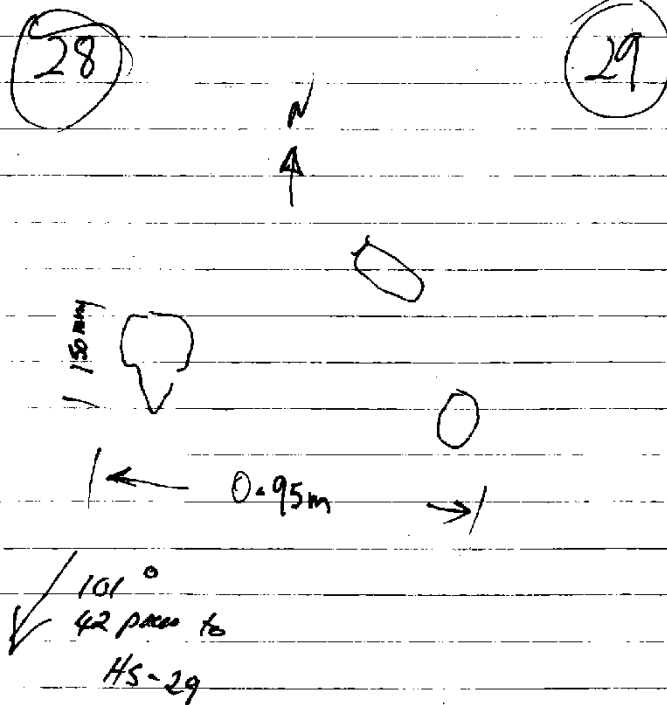 28
29
N
150 mm
0.95m
101°
42 paces to
HS-29